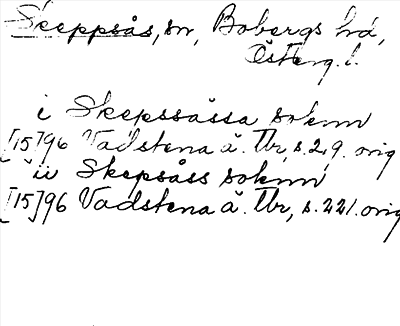 Skeppsås, sn, Bobergs hd,
Österg. l.
i Skepssåssa soknn
[15]96 Vadstena ä. Tbr, s. 219. orig
ij Skepsåss soknn
[15]96 Vadstena ä. Tbr, s. 221. orig